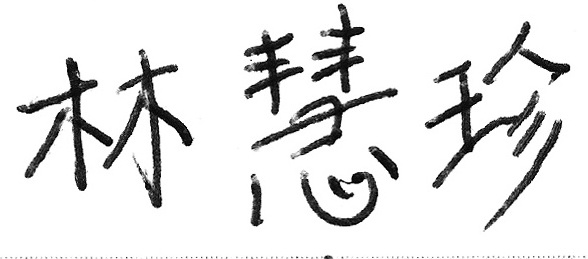 林慧珍